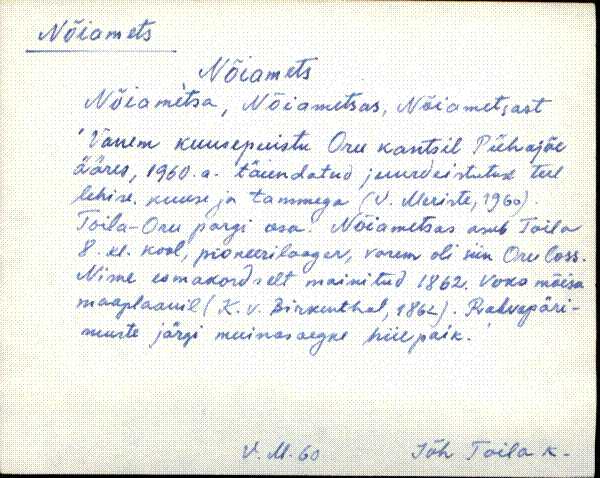 Nõiamets
Nõiamets
Nõiame'tsa, Nõiametsas, Nõiametsast
'Vanem kuusepuistu Oru kantsil Pühajõe
ääres, 1960.a. täiendatud juurdeistutuse teel
lehise, kuuse ja tammega (V. Meriste, 1960).
Toila-Oru pargi osa. Nõiametsas asub Toila
8. kl. kool, pioneerilaager, varem oli siin Oru loss.
Nime esmakordselt mainitud 1862. Voka mõisa
maaplaanil (K. v. Birkenthal, 1862). Rahvapäri-
muste järgi muinasaegne hiie paik.'
V. M. 60 Jõh Toila k-